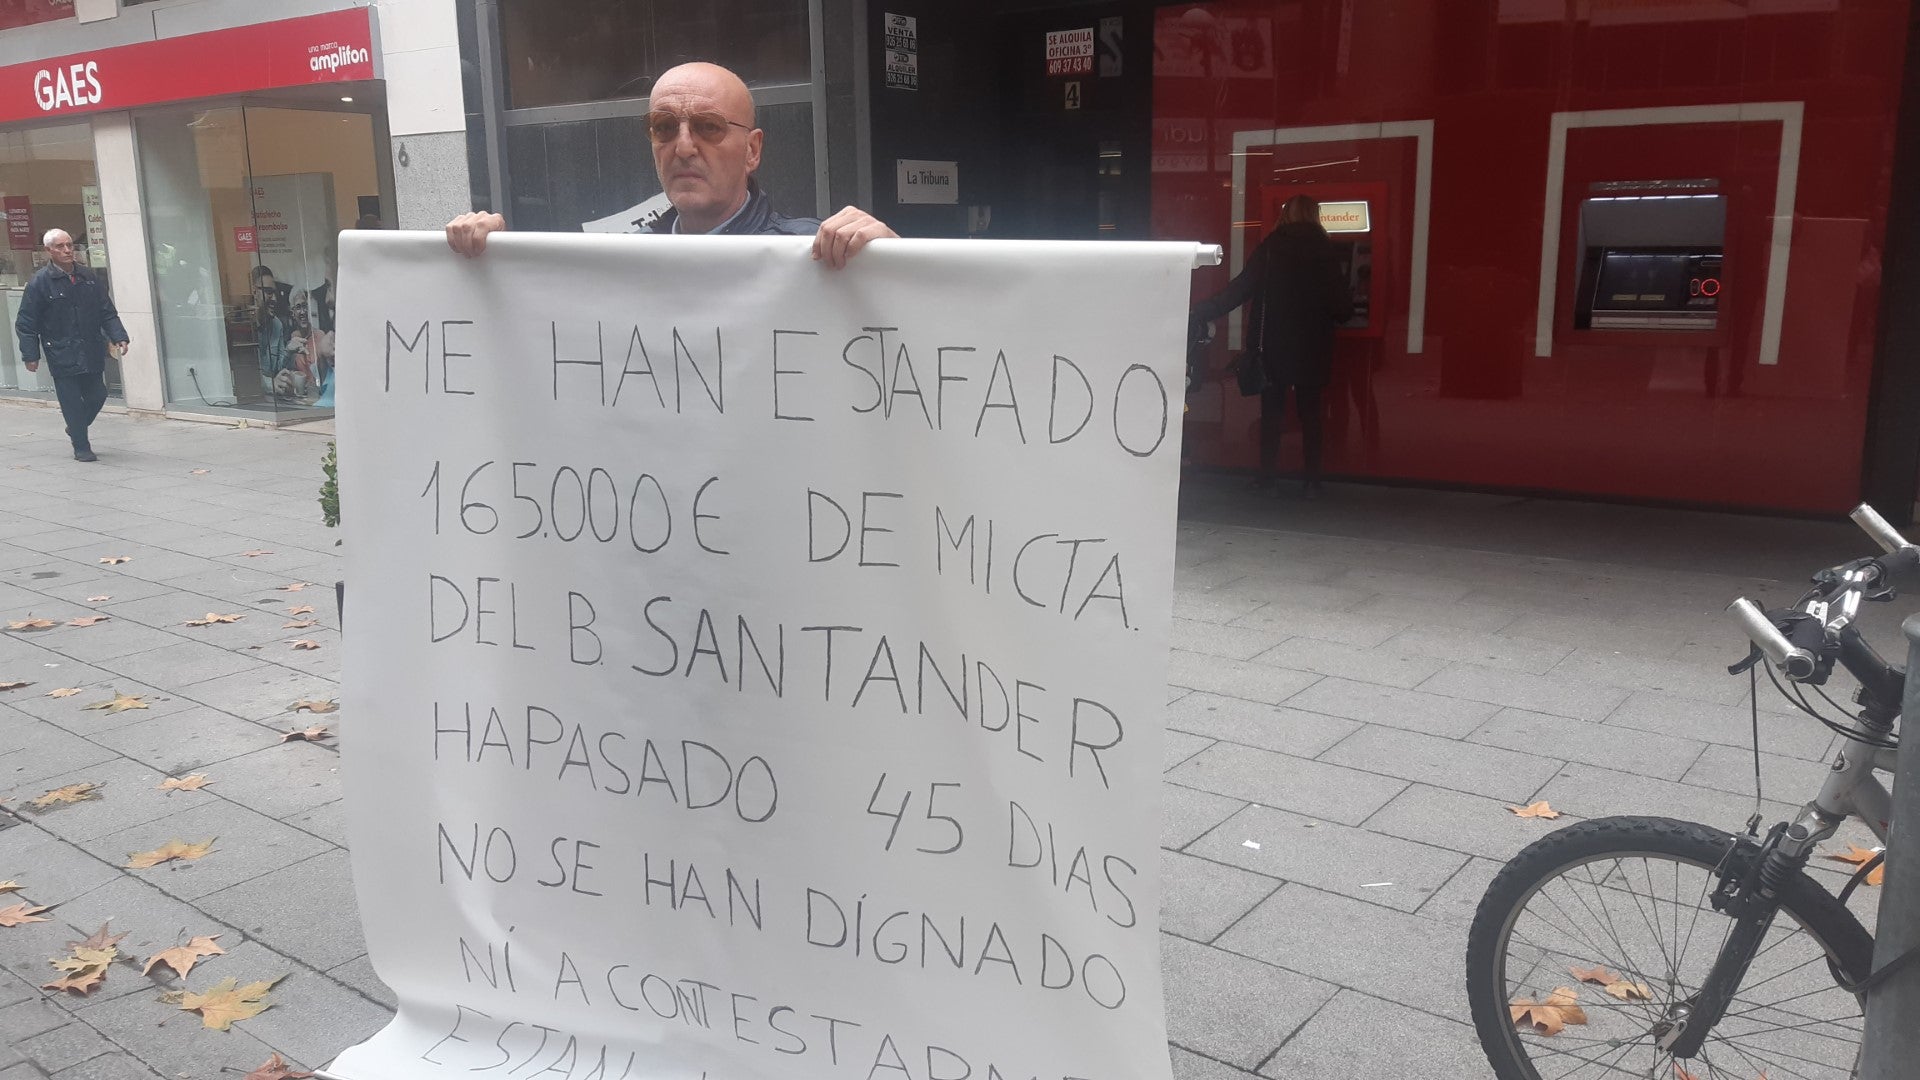 GAES
una marca
amplifon
VENTA
ALQUILER
SE ALQUILA
OFICINA 3º
609 37 43 40
4
La Tribuna
Santander
6
GAES
ME HAN ESTAFADO
165.000€ DE MI CTA.
DEL B. SANTANDER
HA PASADO 45 DIAS
NO SE HAN DÍGNADO
NÍ A CONTESTARME
ESTAN